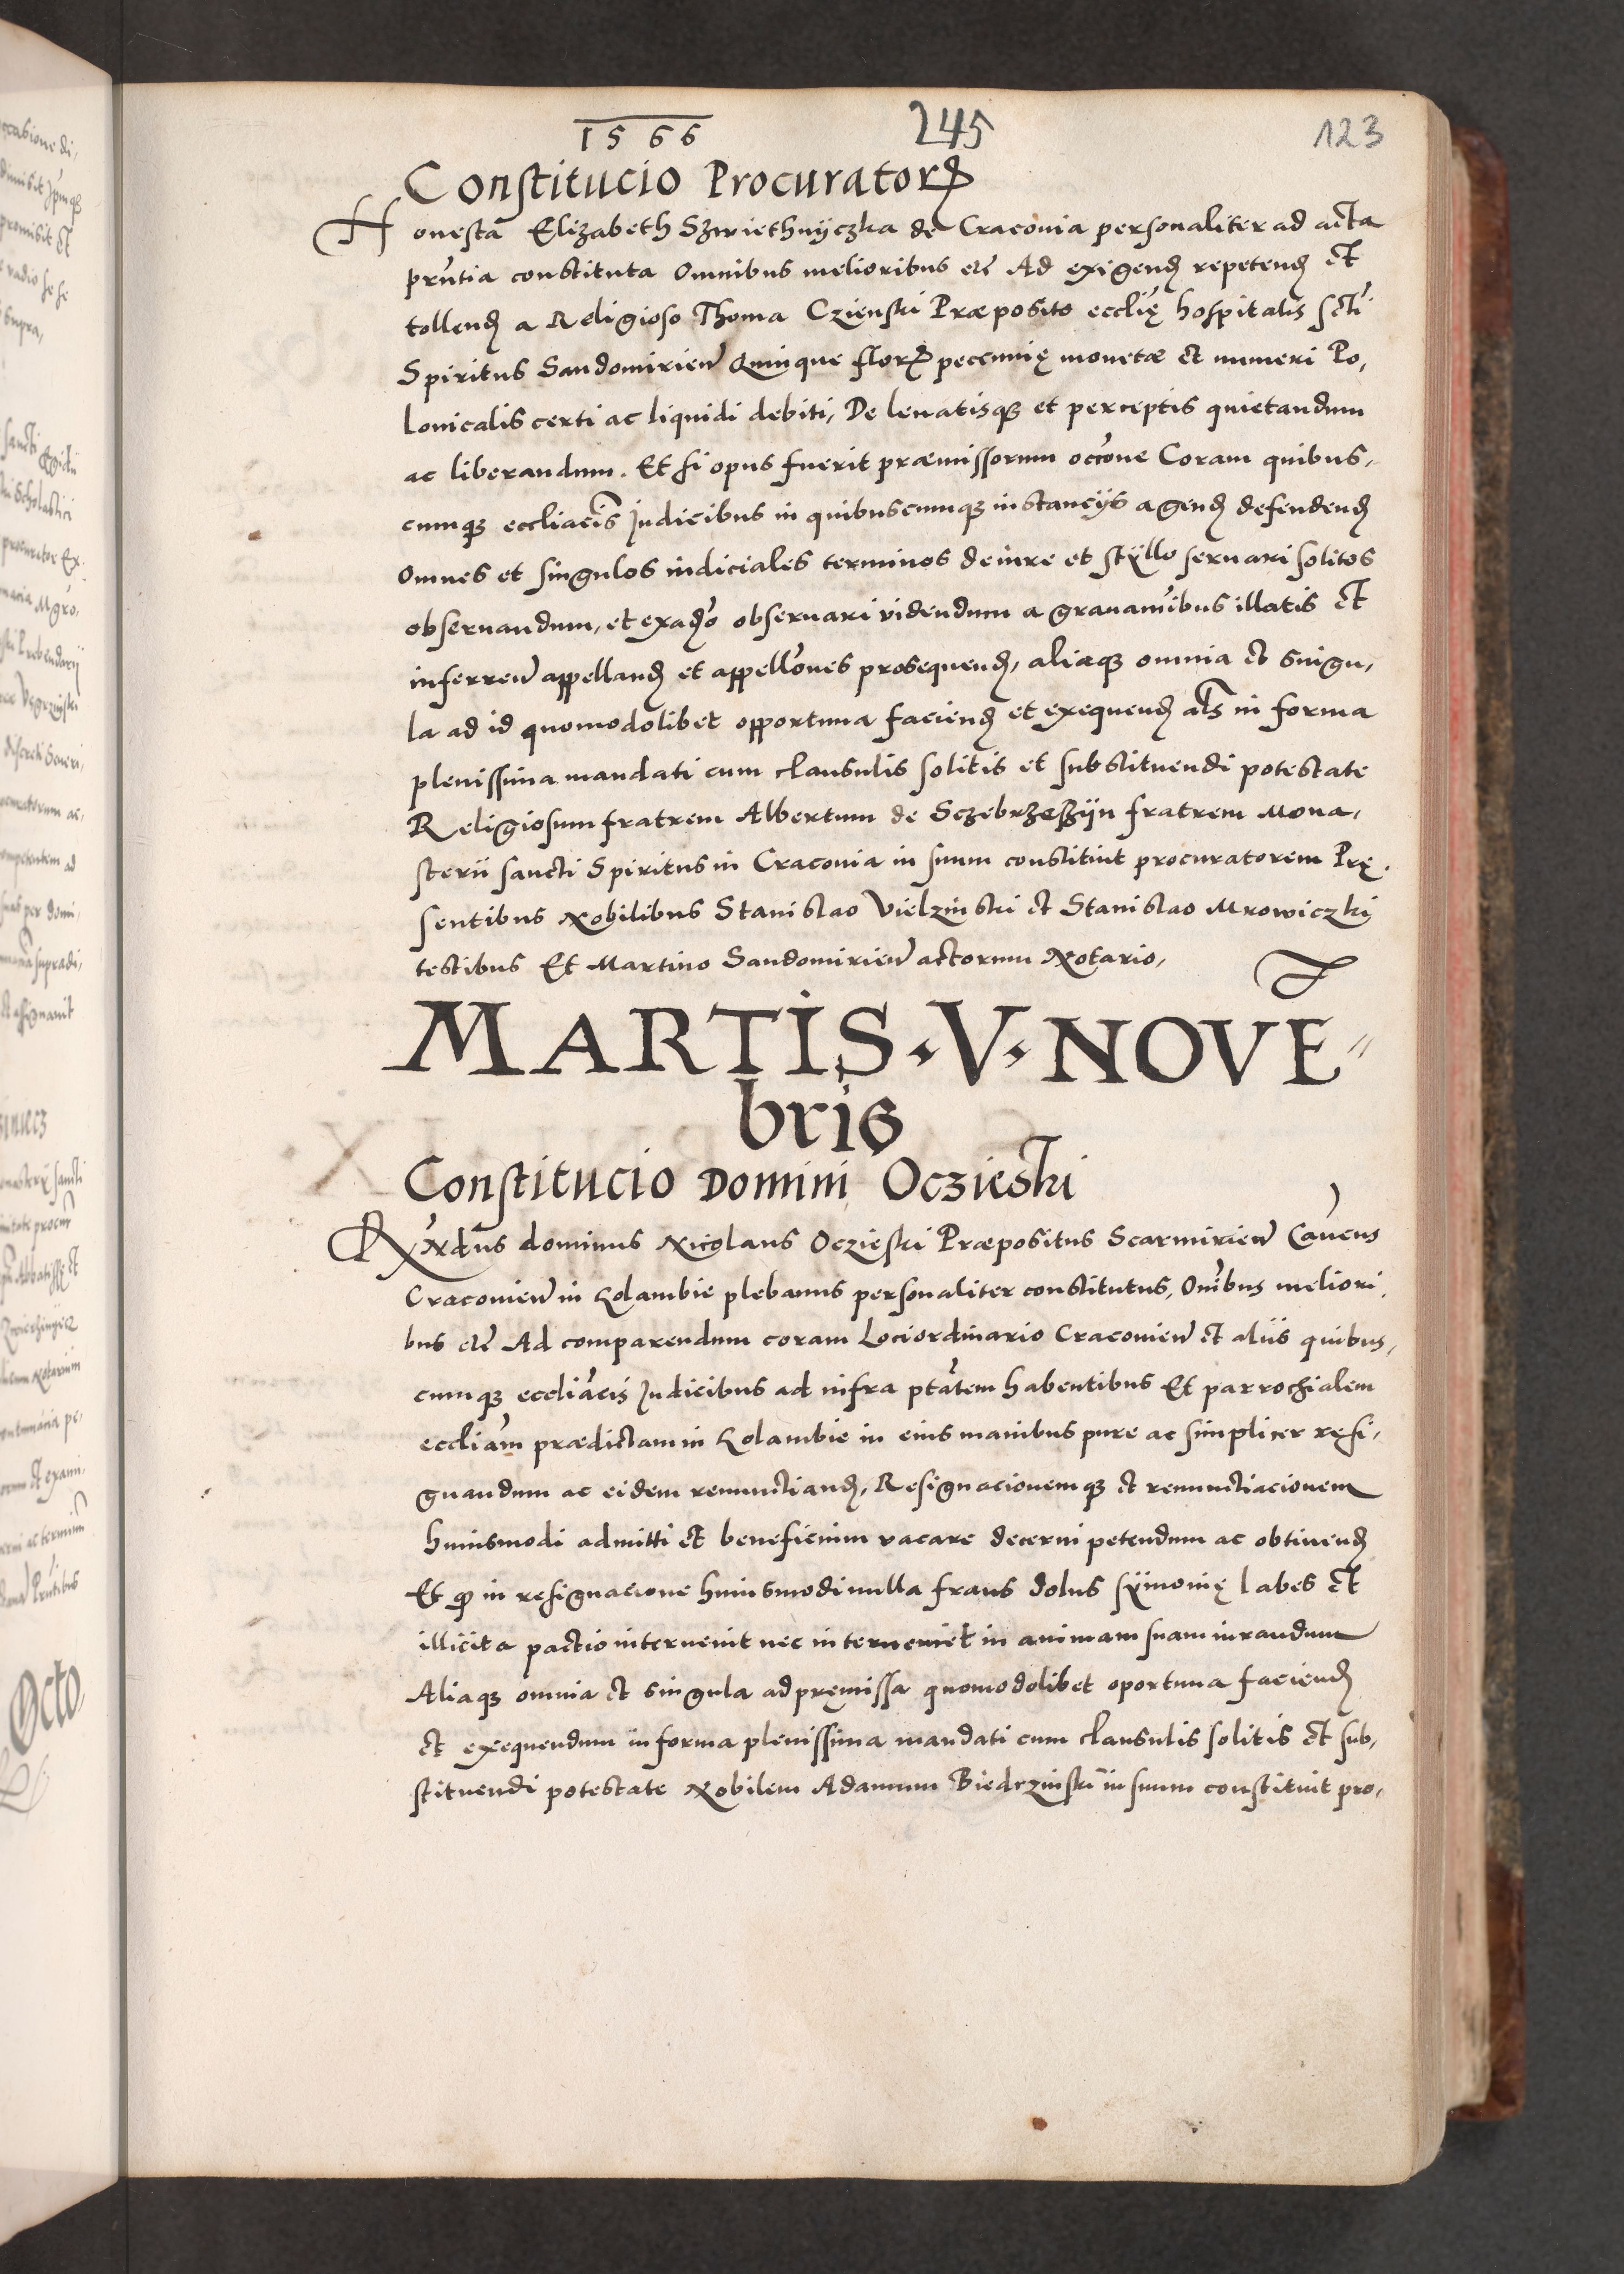 1566
245
123
Constitucio Procuratorꝝ
Honesta Elizabeth Szwiethnyczka de Craconia personaliter ad acta
prñtia constituta Omnibus melioribus etc̃ Ad exigend̃ repetend̃ et
tollend̃ a Religioso Thoma Czienski Præposito ecclię̃ hospitalis scti
Spiritus Sandomirień Quinque florꝝ peccunię monetæ et numeri Po,
lonicalis certi ac liquidi debiti, De leuatisqꝫ et perceptis quietandum
ac liberandum. Et si opus fuerit præmissorum occõne Coram quibus,
cumqꝫ eccliacis Judicibus in quibuscumqꝫ instancijs agend̃ defendend̃
Omnes et singulos iudiciales terminos de iure et stÿllo seruari solitos
obseruandum, et exad̃o obseruari videndum a grauamĩbus illatis et
inferreñ appelland̃ et appellões prosequend̃, aliaqꝫ omnia et singu,
la ad id quomodolibet opportuna faciend̃ et exequend̃ al̃s in forma
plenissima mandati cum clausulis solitis et substituendi potestate
Religiosum fratrem Albertum de Sczebrzeszÿn fratrem Mona,
sterii sancti Spiritus in Craconia in suum constituit procuratorem Prę,
sentibus Nobilibus Stanislao Vielzinski et Stanislao Mrowiczki
testibus Et Martino Sandomirień actorum Notario,
MARTIS · V · NOVẼ
bris
Constitucio Domini Oczieski
Rx̃ndus dominus Nicolaus Oczieski Præpositus Scarmirień Cañcus
Cracouień in Kolambie plebanus personaliter constitutus, Onĩbus meliori,
bus etc̃ Ad comparendum coram Loci ordinario Cracouień et aliis quibus,
cumqꝫ eccliãcis Judicibus ad infra ptãtem habentibus Et parrochialem
eccliãm prædictam in Kolambie in eius manibus pure ac simpliter resi,
gnandum ac eidem renunctiand̃, Resignacionemqꝫ et renunctiacionem
huiusmodi admitti et beneficium vacare decerni petendum ac obtinend̃
Et ꝙ in resignacione huiusmodi nulla fraus dolus sÿmonię labes et
illicita pactio interuenit nec interueniet in animam suam iurandum
Aliaqꝫ omnia et singula ad pręmissa quomodolibet oportuna faciend̃
et exequendum in forma plenissima mandati cum clausulis solitis et sub,
stituendi potestate Nobilem Adamum Biedrzinski in suum constituit pro,